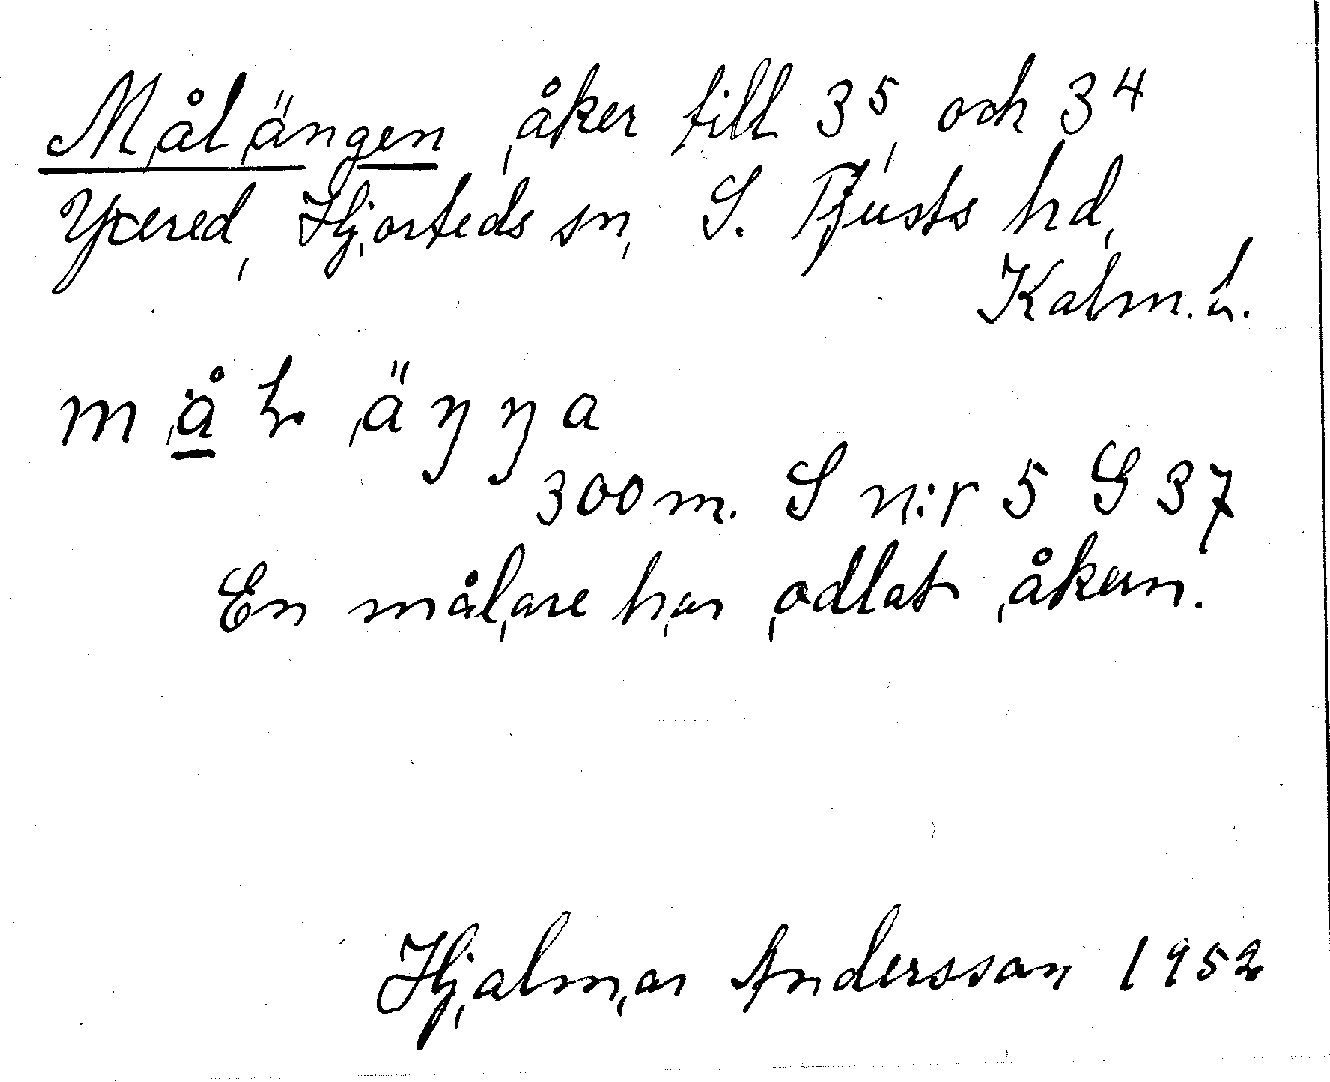 Målängen, åker till 3⁵, och 3⁴
Yxered, Hjorteds sn, S. Tjusts hd,
Kalm. l.
må̲l äŋŋa
300 m. S n:r 5 G 37
En målare har odlat åkern.
Hjalmar Andersson 1952